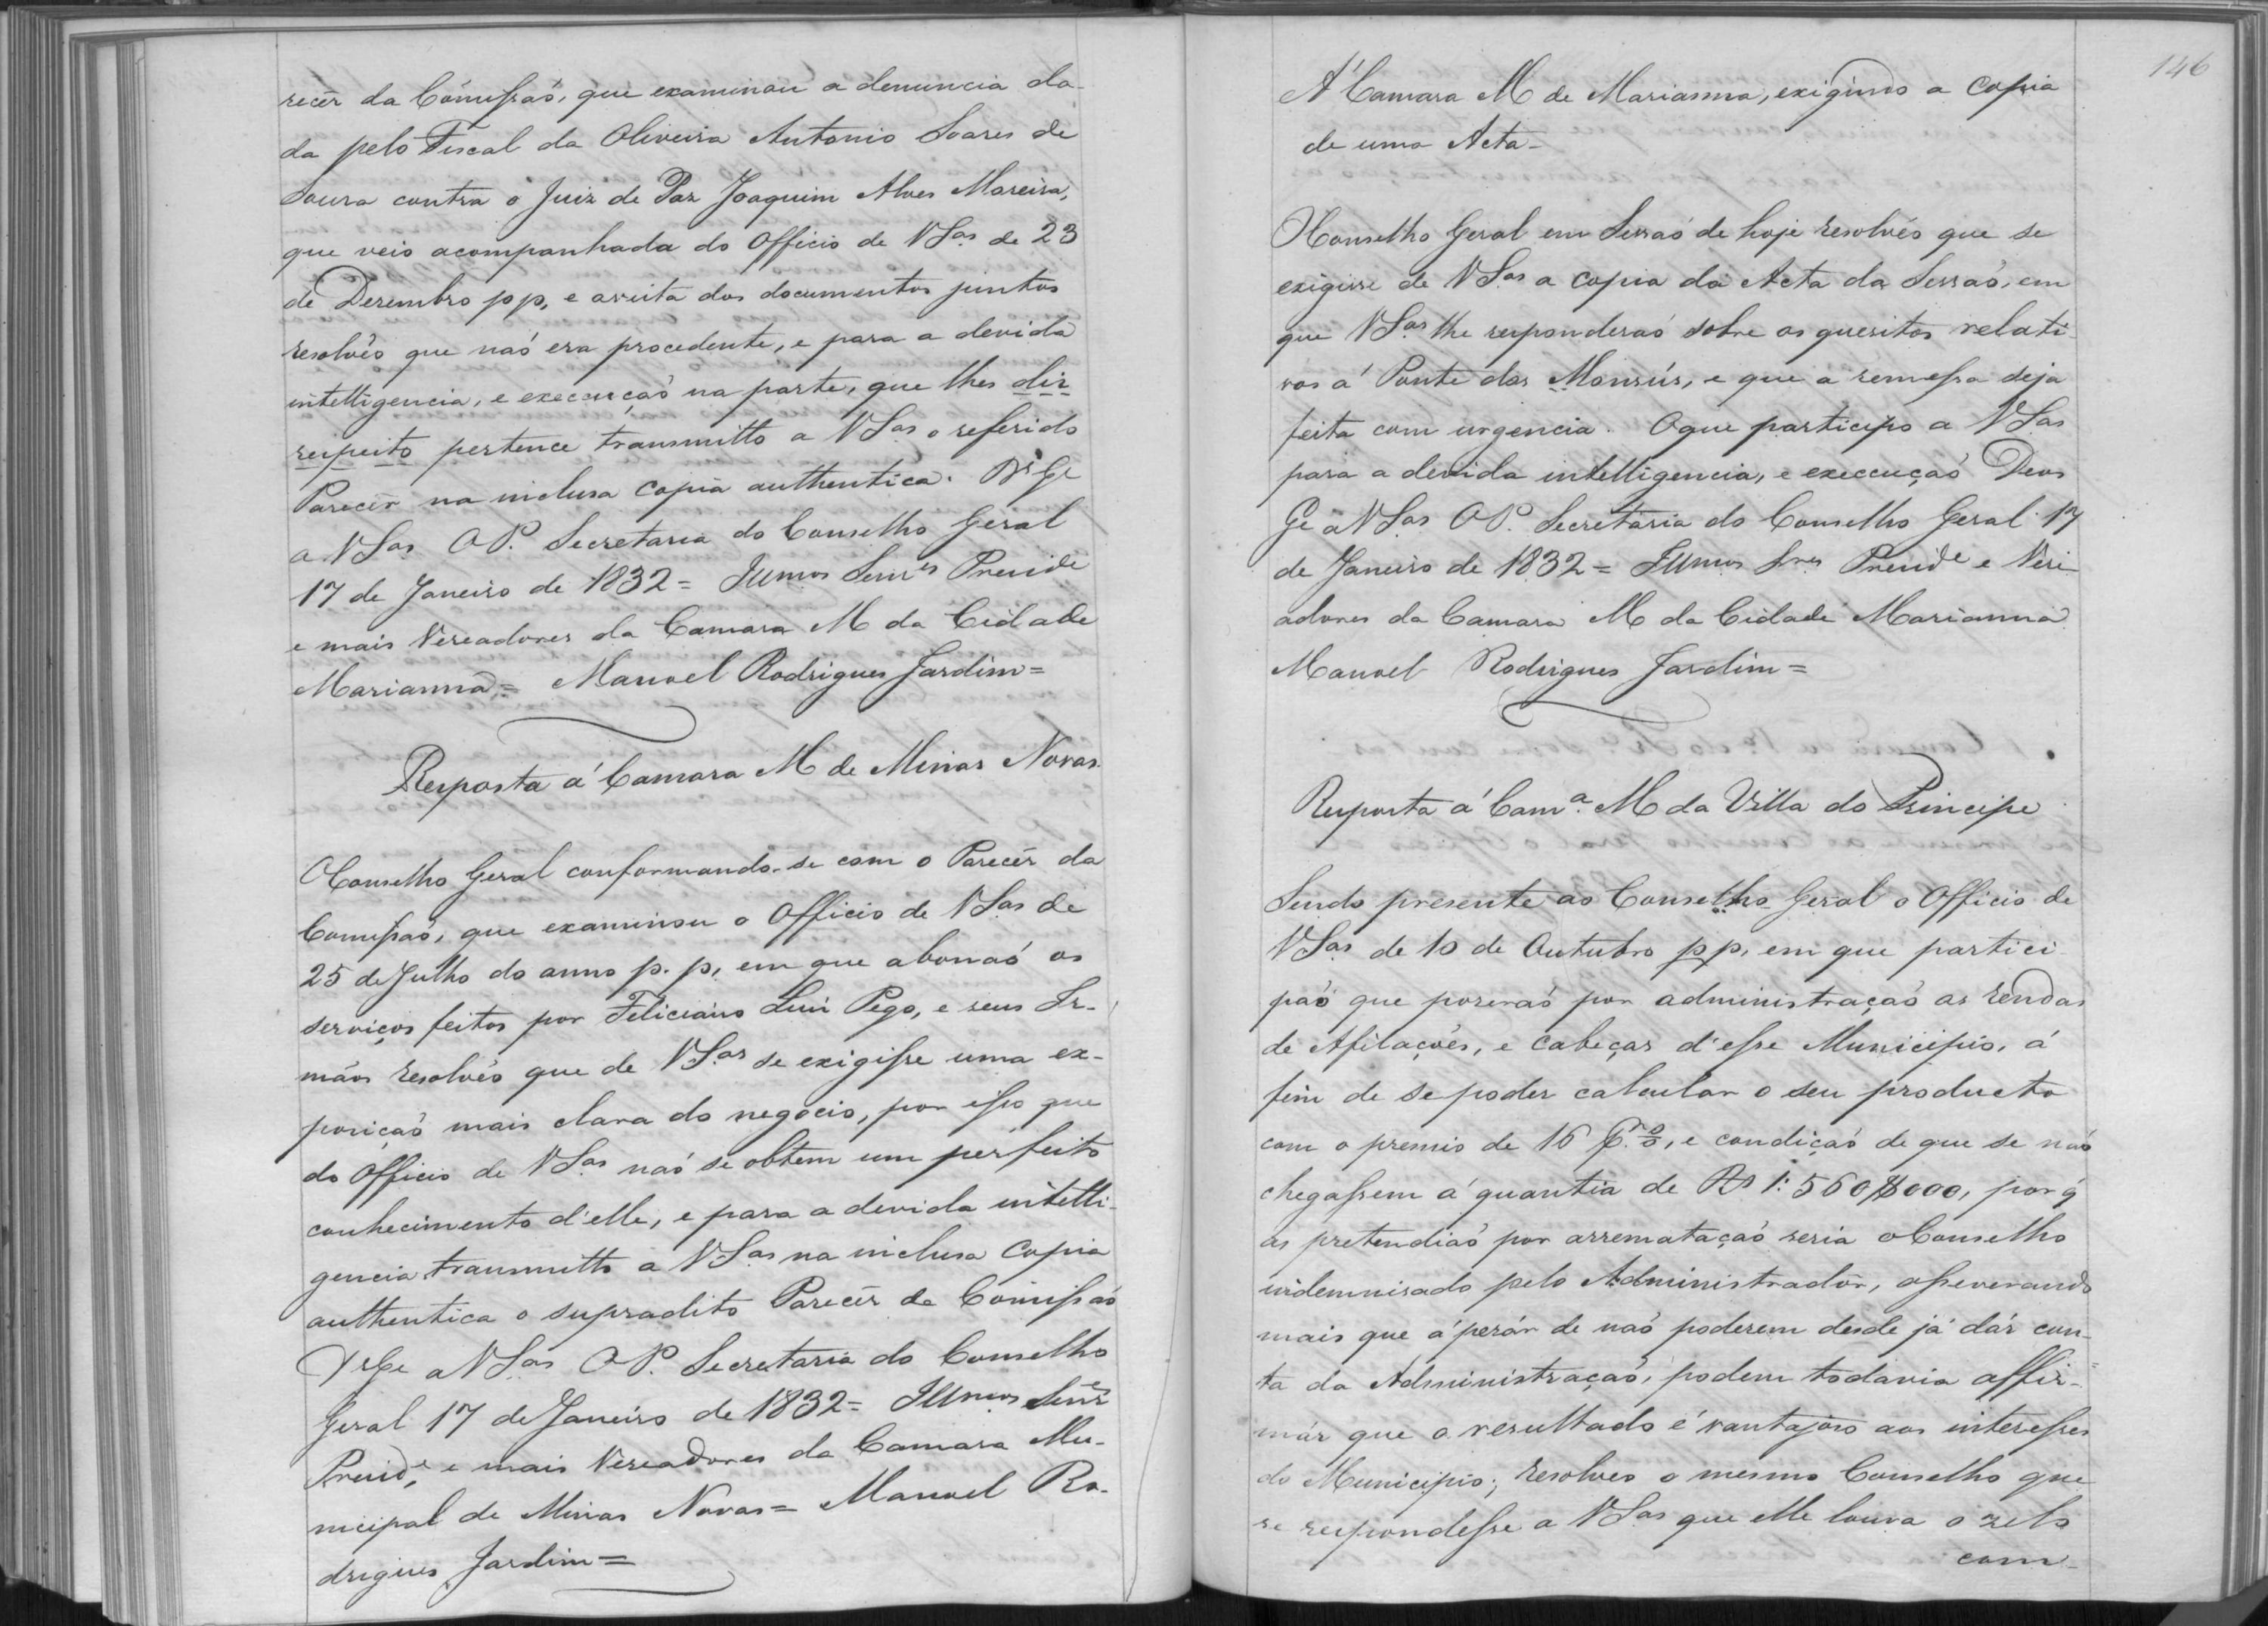 recêr da Cómissaõ, que examinou a denuncia da-
da pelo Fiscal da Oliveira Antonio Soares de
Souza contra o Juiz de Paz Joaquim Alves Moreira,
que veio acompanhada do Officio de VSas de 23
de Dezembro pp, e avista dos documentos juntos
resolvêo que naõ era procedente, e para a devida
intelligencia, e execcuçaõ na parte, que lhes diz
respeito pertence transmitto a VSas o referido
Parecêr na inclusa copia authentica. Ds Ge
a VSas OP. Secretaria do Conselho Geral
17 de Janeiro de 1832 = Illmos Senres Prezide
e mais Vereadores da Camara M da Cidade
Marianna = Manoel Rodrigues Jardim =
Resposta á Camara M de Minas Novas
O Conselho Geral conformando-se com o Parecêr da
Comissaõ, que examinou o Officio de VSas de
25 de Julho do anno p. p, em que abonaõ os
serviços feitos por Feliciano Luis Pego, e seus Ir-
mãos resolvêo que de VSas se exigisse uma ex-
posiçaõ mais clara do negocio, por isso que
do Officio de VSas naõ se obtem um perfeito
conhecimento d'elle, e para a devida intelli-
gencia transmitto a VSas na inclusa Copia
authentica o supradito Parecêr da Comissaõ
Ds Ge a VSas OP. Secretaria do Conselho
Geral 17 de Janeiro de 1832 = Illmos Senres
Prezide e mais Vereadores da Camara Mu-
nicipal de Minas Novas = Manoel Ro-
drigues Jardim =
146
A' Camara M de Marianna, exigindo a Copia
de uma Acta-
O Conselho Geral em Sessaõ de hoje resolvêo que se
exigisse de VSas a copia da Acta da Sessaõ, em
que VSas lhe responderaõ sobre os quesitos relati-
vos á Ponte dos Monsús, e que a remessa seja
feita com urgencia. O que participo a VSas
para a devida intelligencia, e execcuçaõ Deos
Ge a VSas OP. Secretaria do Conselho Geral 17
de Janeiro de 1832 = Illmos Snres Prezide e Veri-
adores da Camara M da Cidade Marianna
Manoel Rodrigues Jardim =
Resposta á Cama. M da Villa do Principe
Sendo presente ao Conselho Geral o Officio de
VSas de 10 de Outubro pp, em que partici-
paõ que pozeraõ por administraçaõ as rendas
de Afilaçoẽs, e cabeças d'esse Municipio, á
fim de se poder calcular o seu producto
com o premio de 16 P. %, e condiçaõ de que se naõ
chegassem á quantia de Rs 1:560$000, por q̃
as pretendiaõ por arremataçaõ seria o Conselho
indemnisado pelo Administradôr, asseverando
mais que á pezár de naõ poderem desde já dár con-
ta da Administraçaõ, podem todavia affir-
már que o resultado é vantajôzo aos interesses
do Municipio; resolveo o mesmo Conselho que
se respondesse a VSas que elle louva o zelo
com-